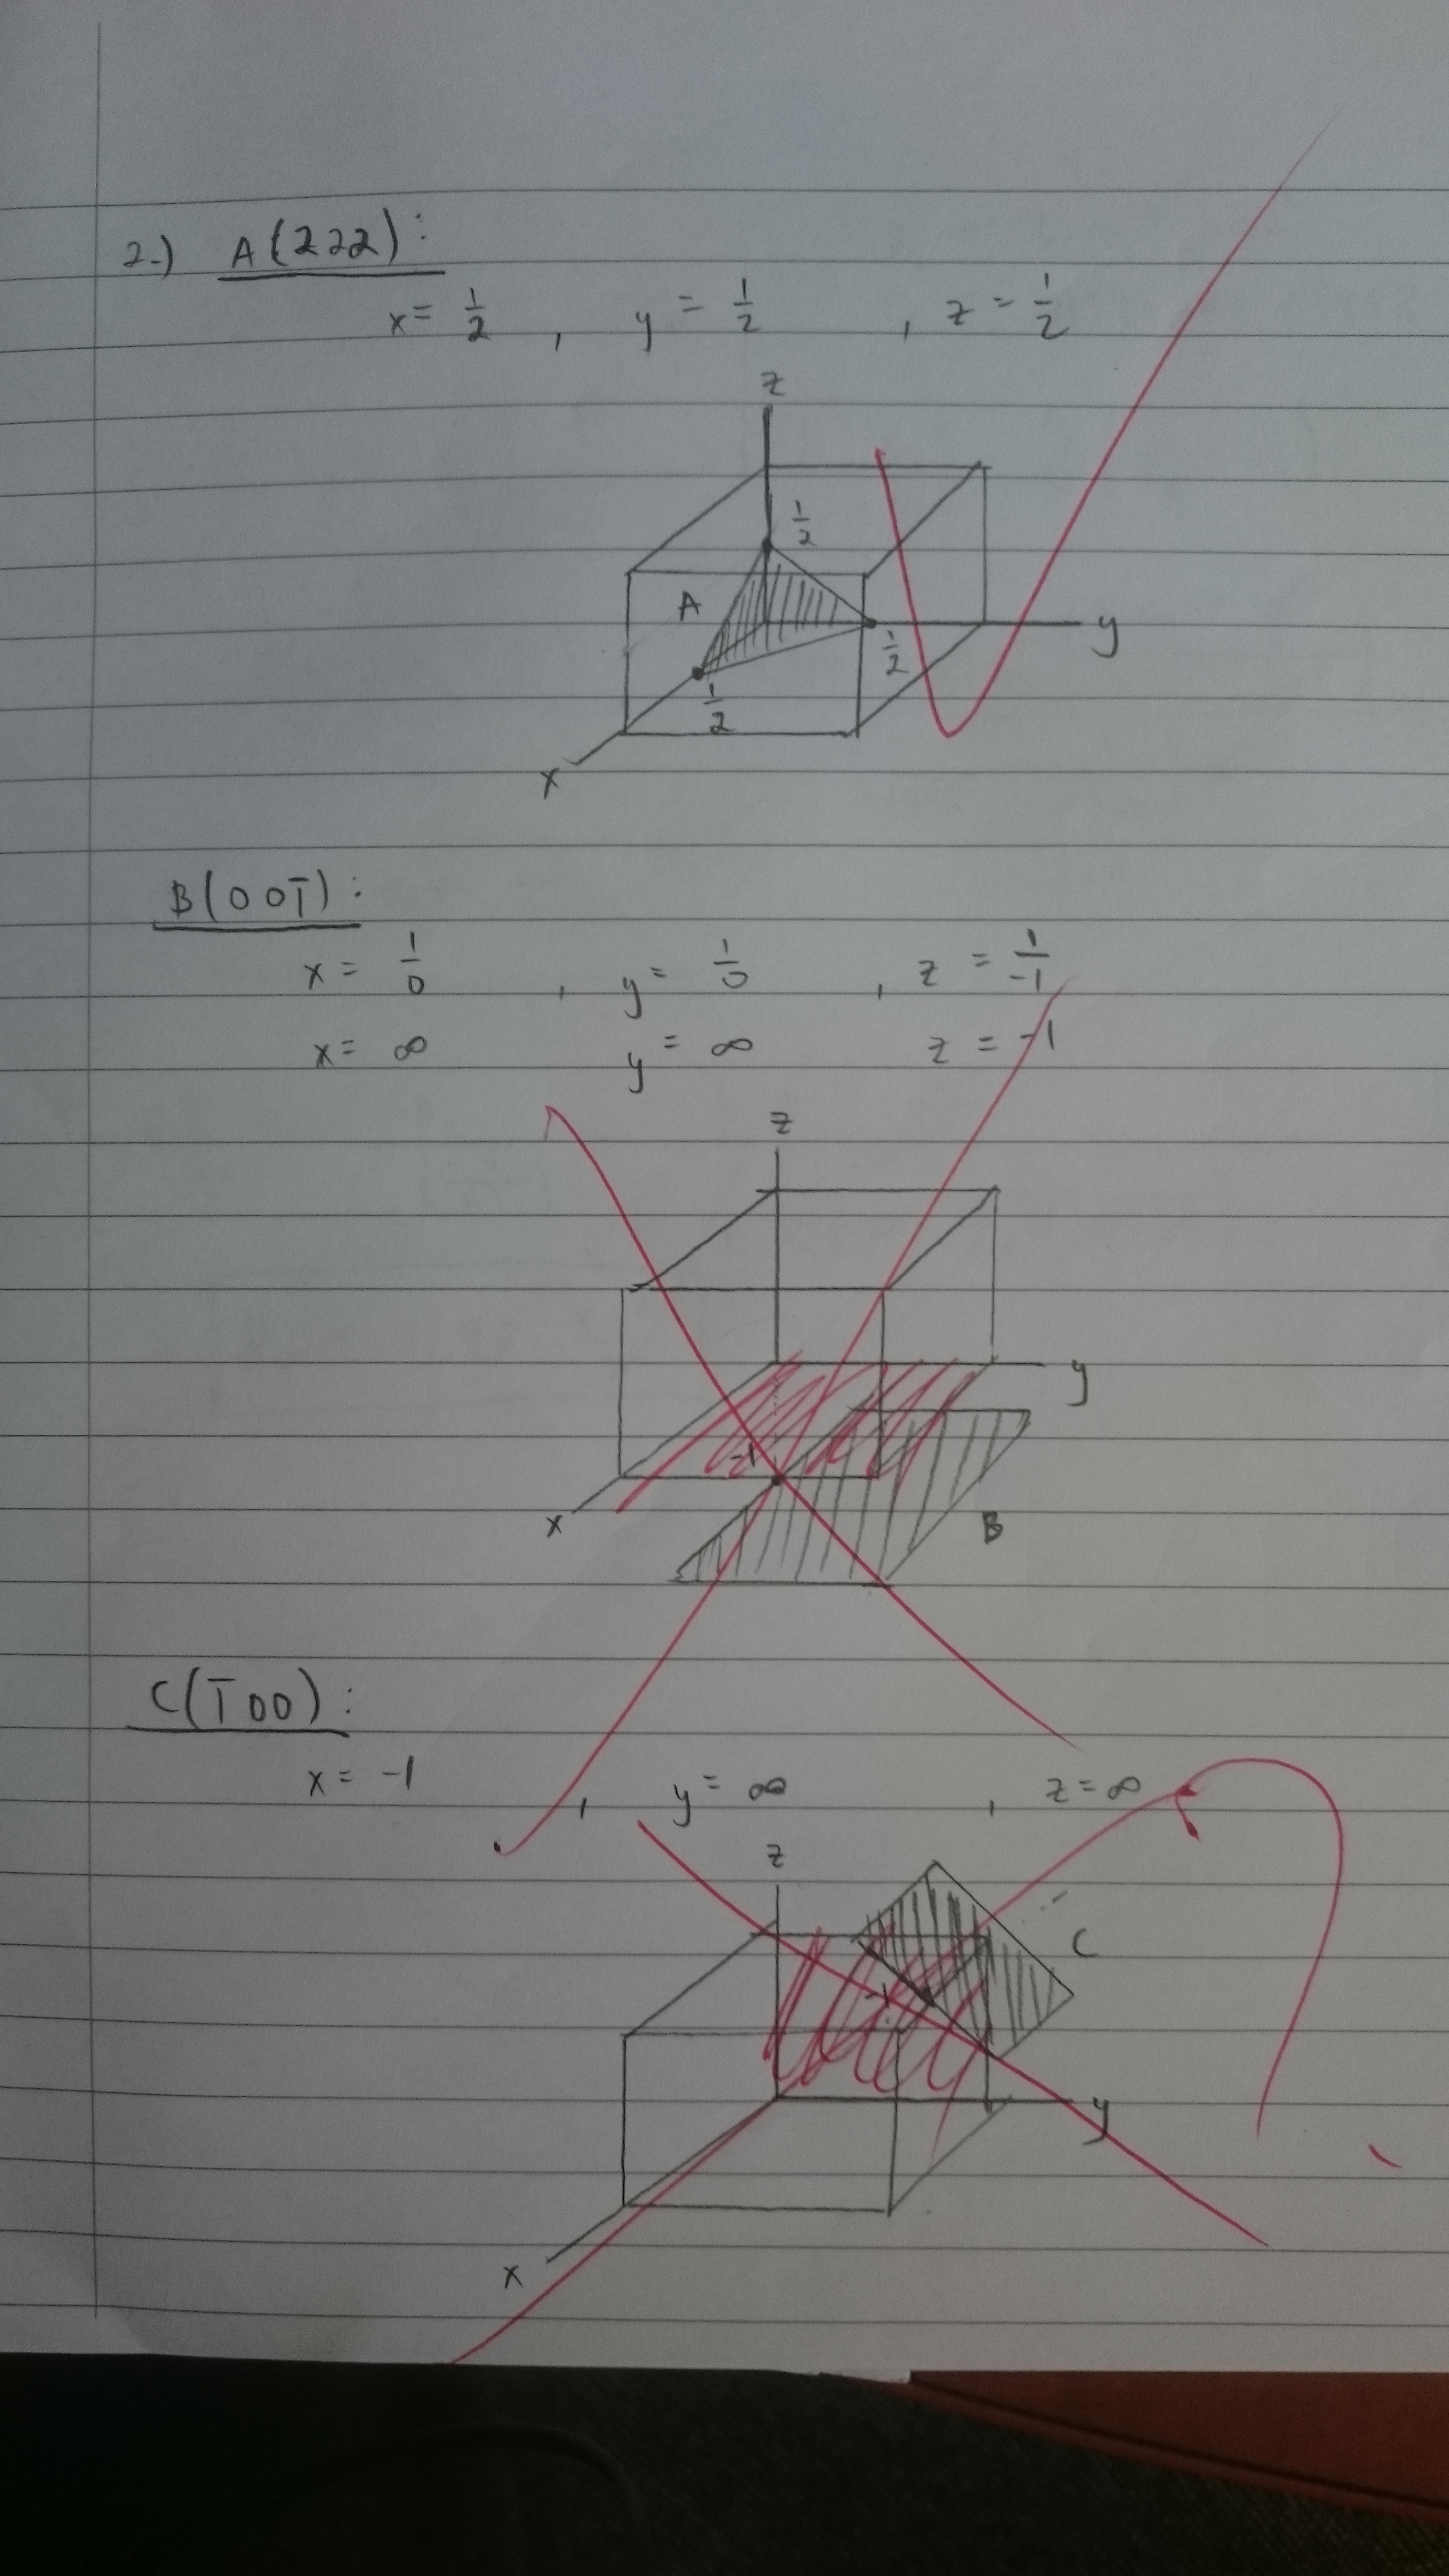 2.) A(222):
x = 1/2 , y = 1/2 , z = 1/2
z
1/2
A
y
1/2
1/2
x
B(001̄):
x = 1/0 , y = 1/0 , z = 1/-1
x = ∞ y = ∞ z = -1
z
y
-1
x
B
C(1̄00):
x = -1 , y = ∞ , z = ∞
z
C
-1
y
x